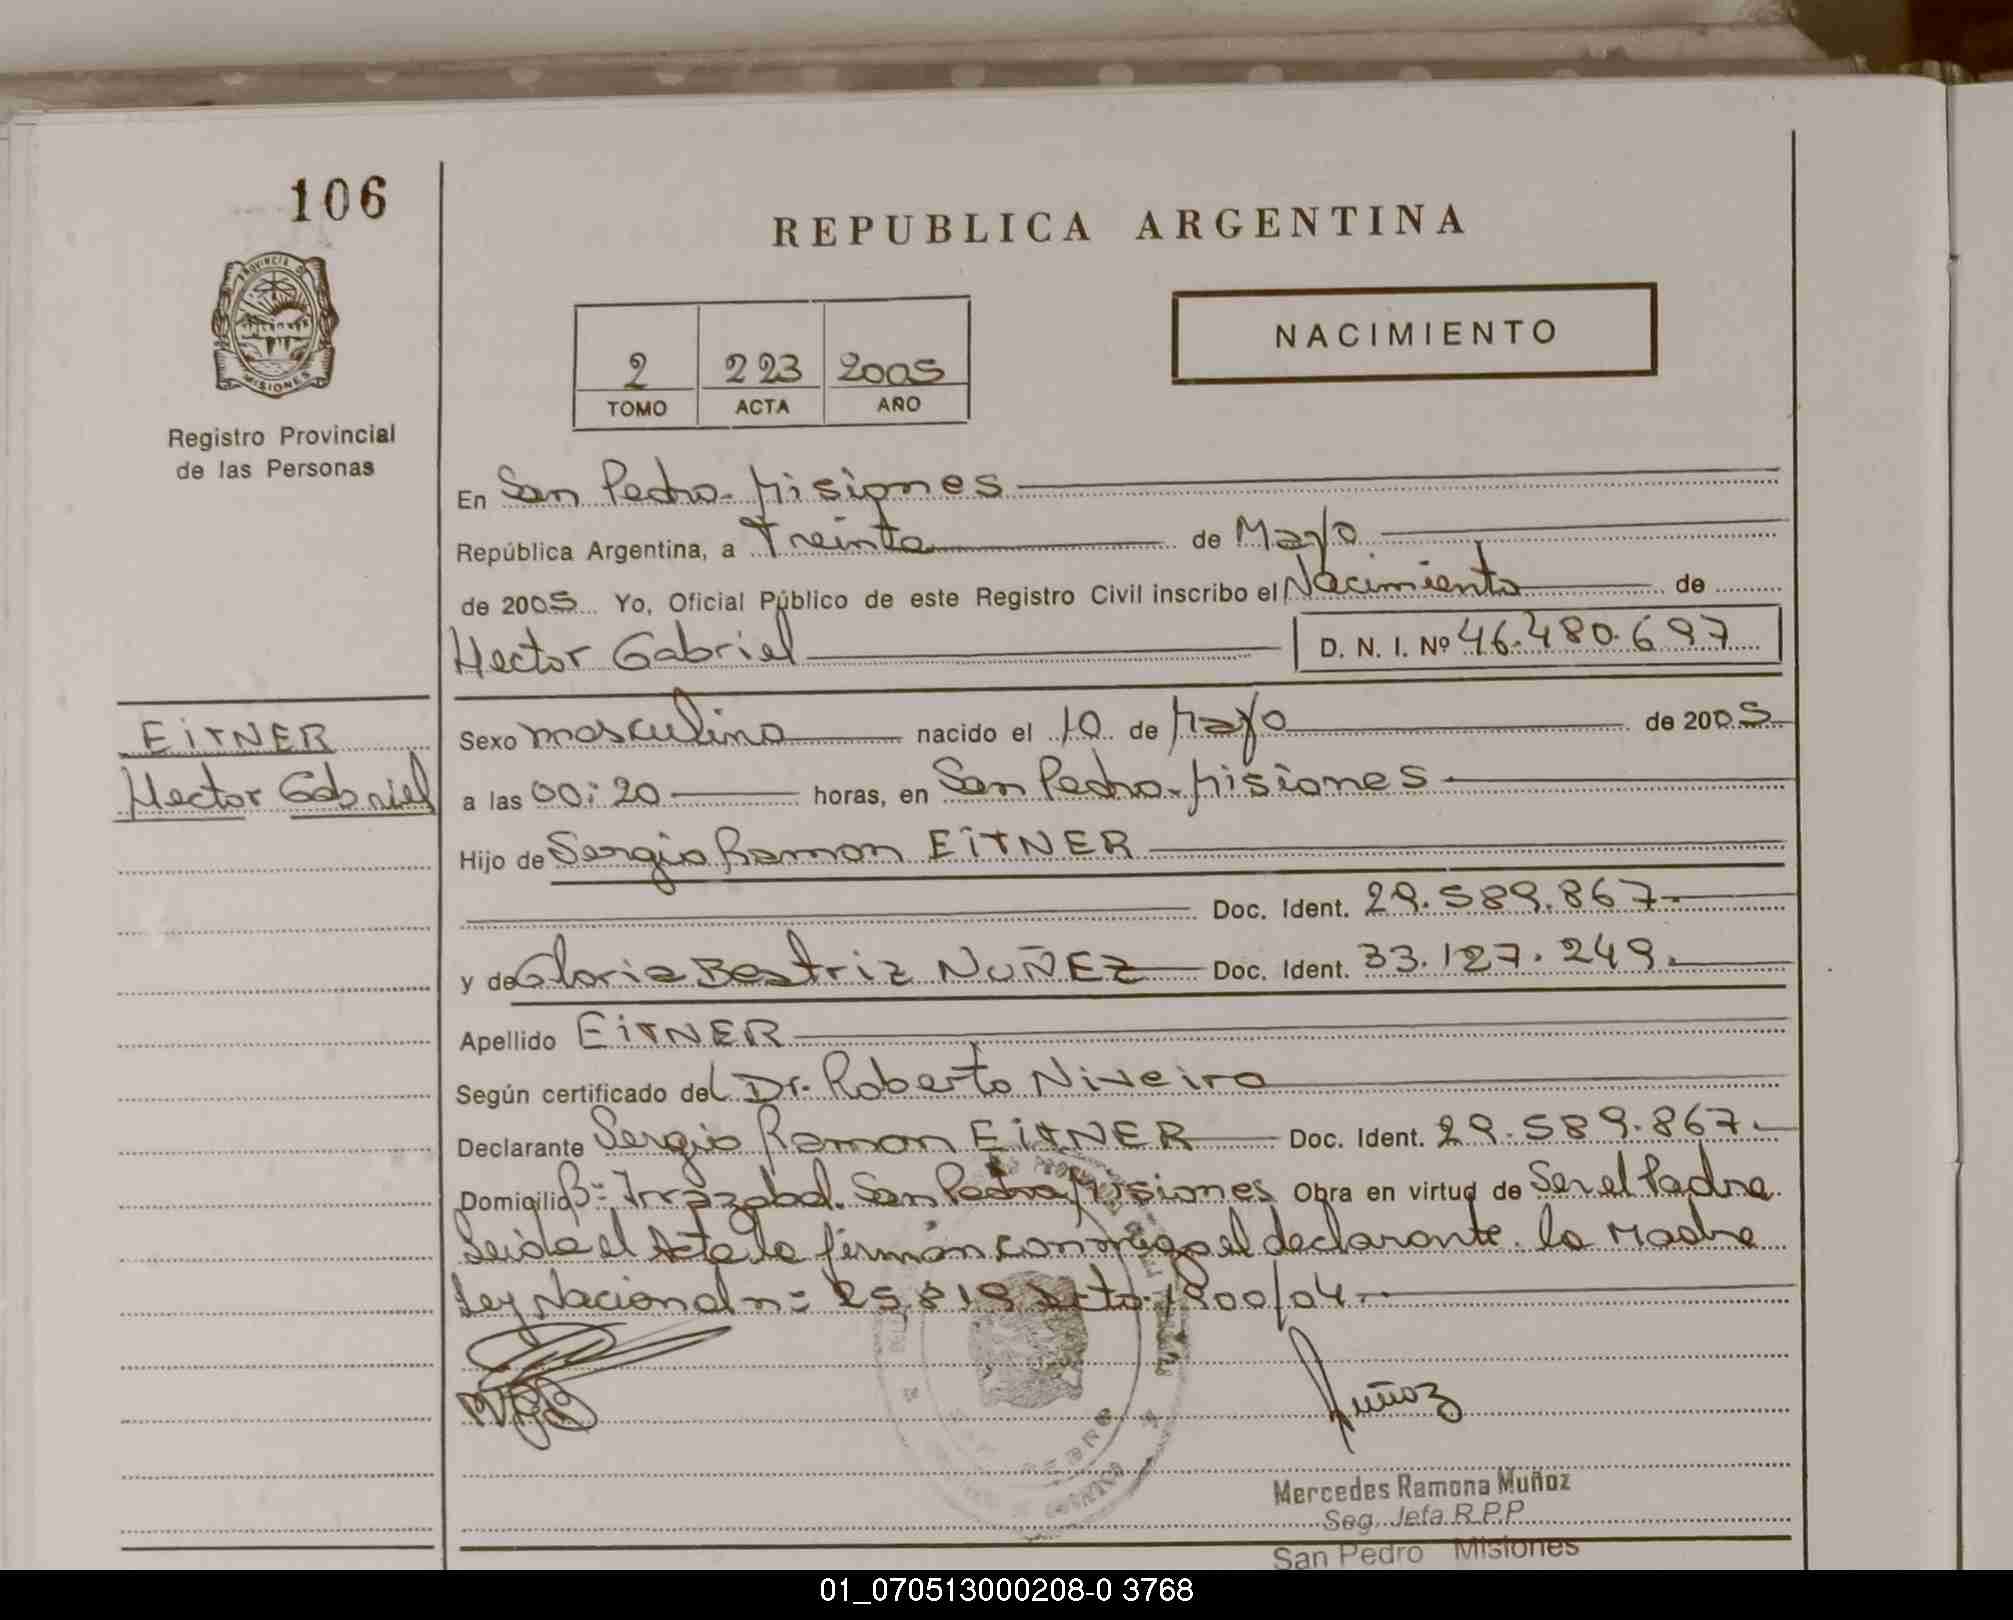 106
REPUBLICA ARGENTINA
PROVINCIA D
MISIONES
Registro Provincial
de las Personas
2 223 2005
TOMO ACTA AÑO
NACIMIENTO
En San Pedro-Misiones
República Argentina, a Treinta de Mayo
de 2005 Yo, Oficial Público de este Registro Civil inscribo el Nacimiento de
Hector Gabriel D. N. I. Nº 46.480.697
EITNER
Hector Gabriel
Sexo masculino nacido el 10 de Mayo de 2005
a las 00:20 horas, en San Pedro-Misiones
Hijo de Sergio Ramon EITNER
Doc. Ident. 29.589.867-
y de Gloria Beatriz NUÑEZ Doc. Ident. 33.127.249.
Apellido EITNER
Según certificado del Dr. Roberto Niveiro
Declarante Sergio Ramon EITNER Doc. Ident. 29.589.867-
Domicilio Bº Irrazabal. San Pedro Misiones Obra en virtud de Ser el Padre
Leida el Acta la firman conmigo el declarante. la Madre
Ley Nacional n= 25.819 Dcto. 1900/04-
Muñoz
Mercedes Ramona Muñoz
Seg. Jefa R.P.P.
San Pedro Misiones
01_070513000208-0 3768